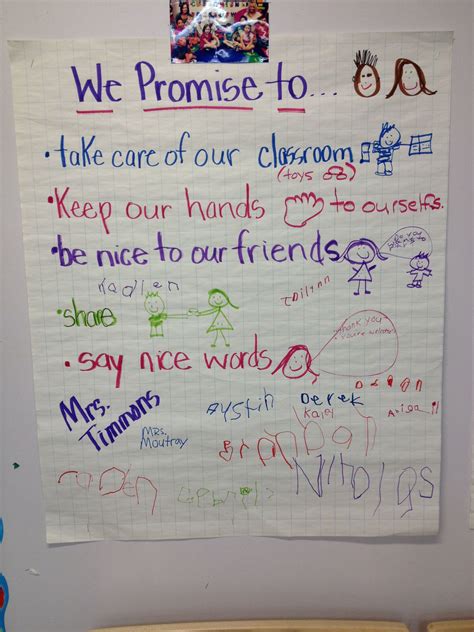 We Promise to...
• take care of our classroom
(toys)
• Keep our hands to ourselves.
• be nice to our friends
Kadlen
• share
• say nice words
Thank you
you're welcome
Mrs.
Timmons
Mrs.
Moutray
Aystin
Derek
Kaley
Nicholas